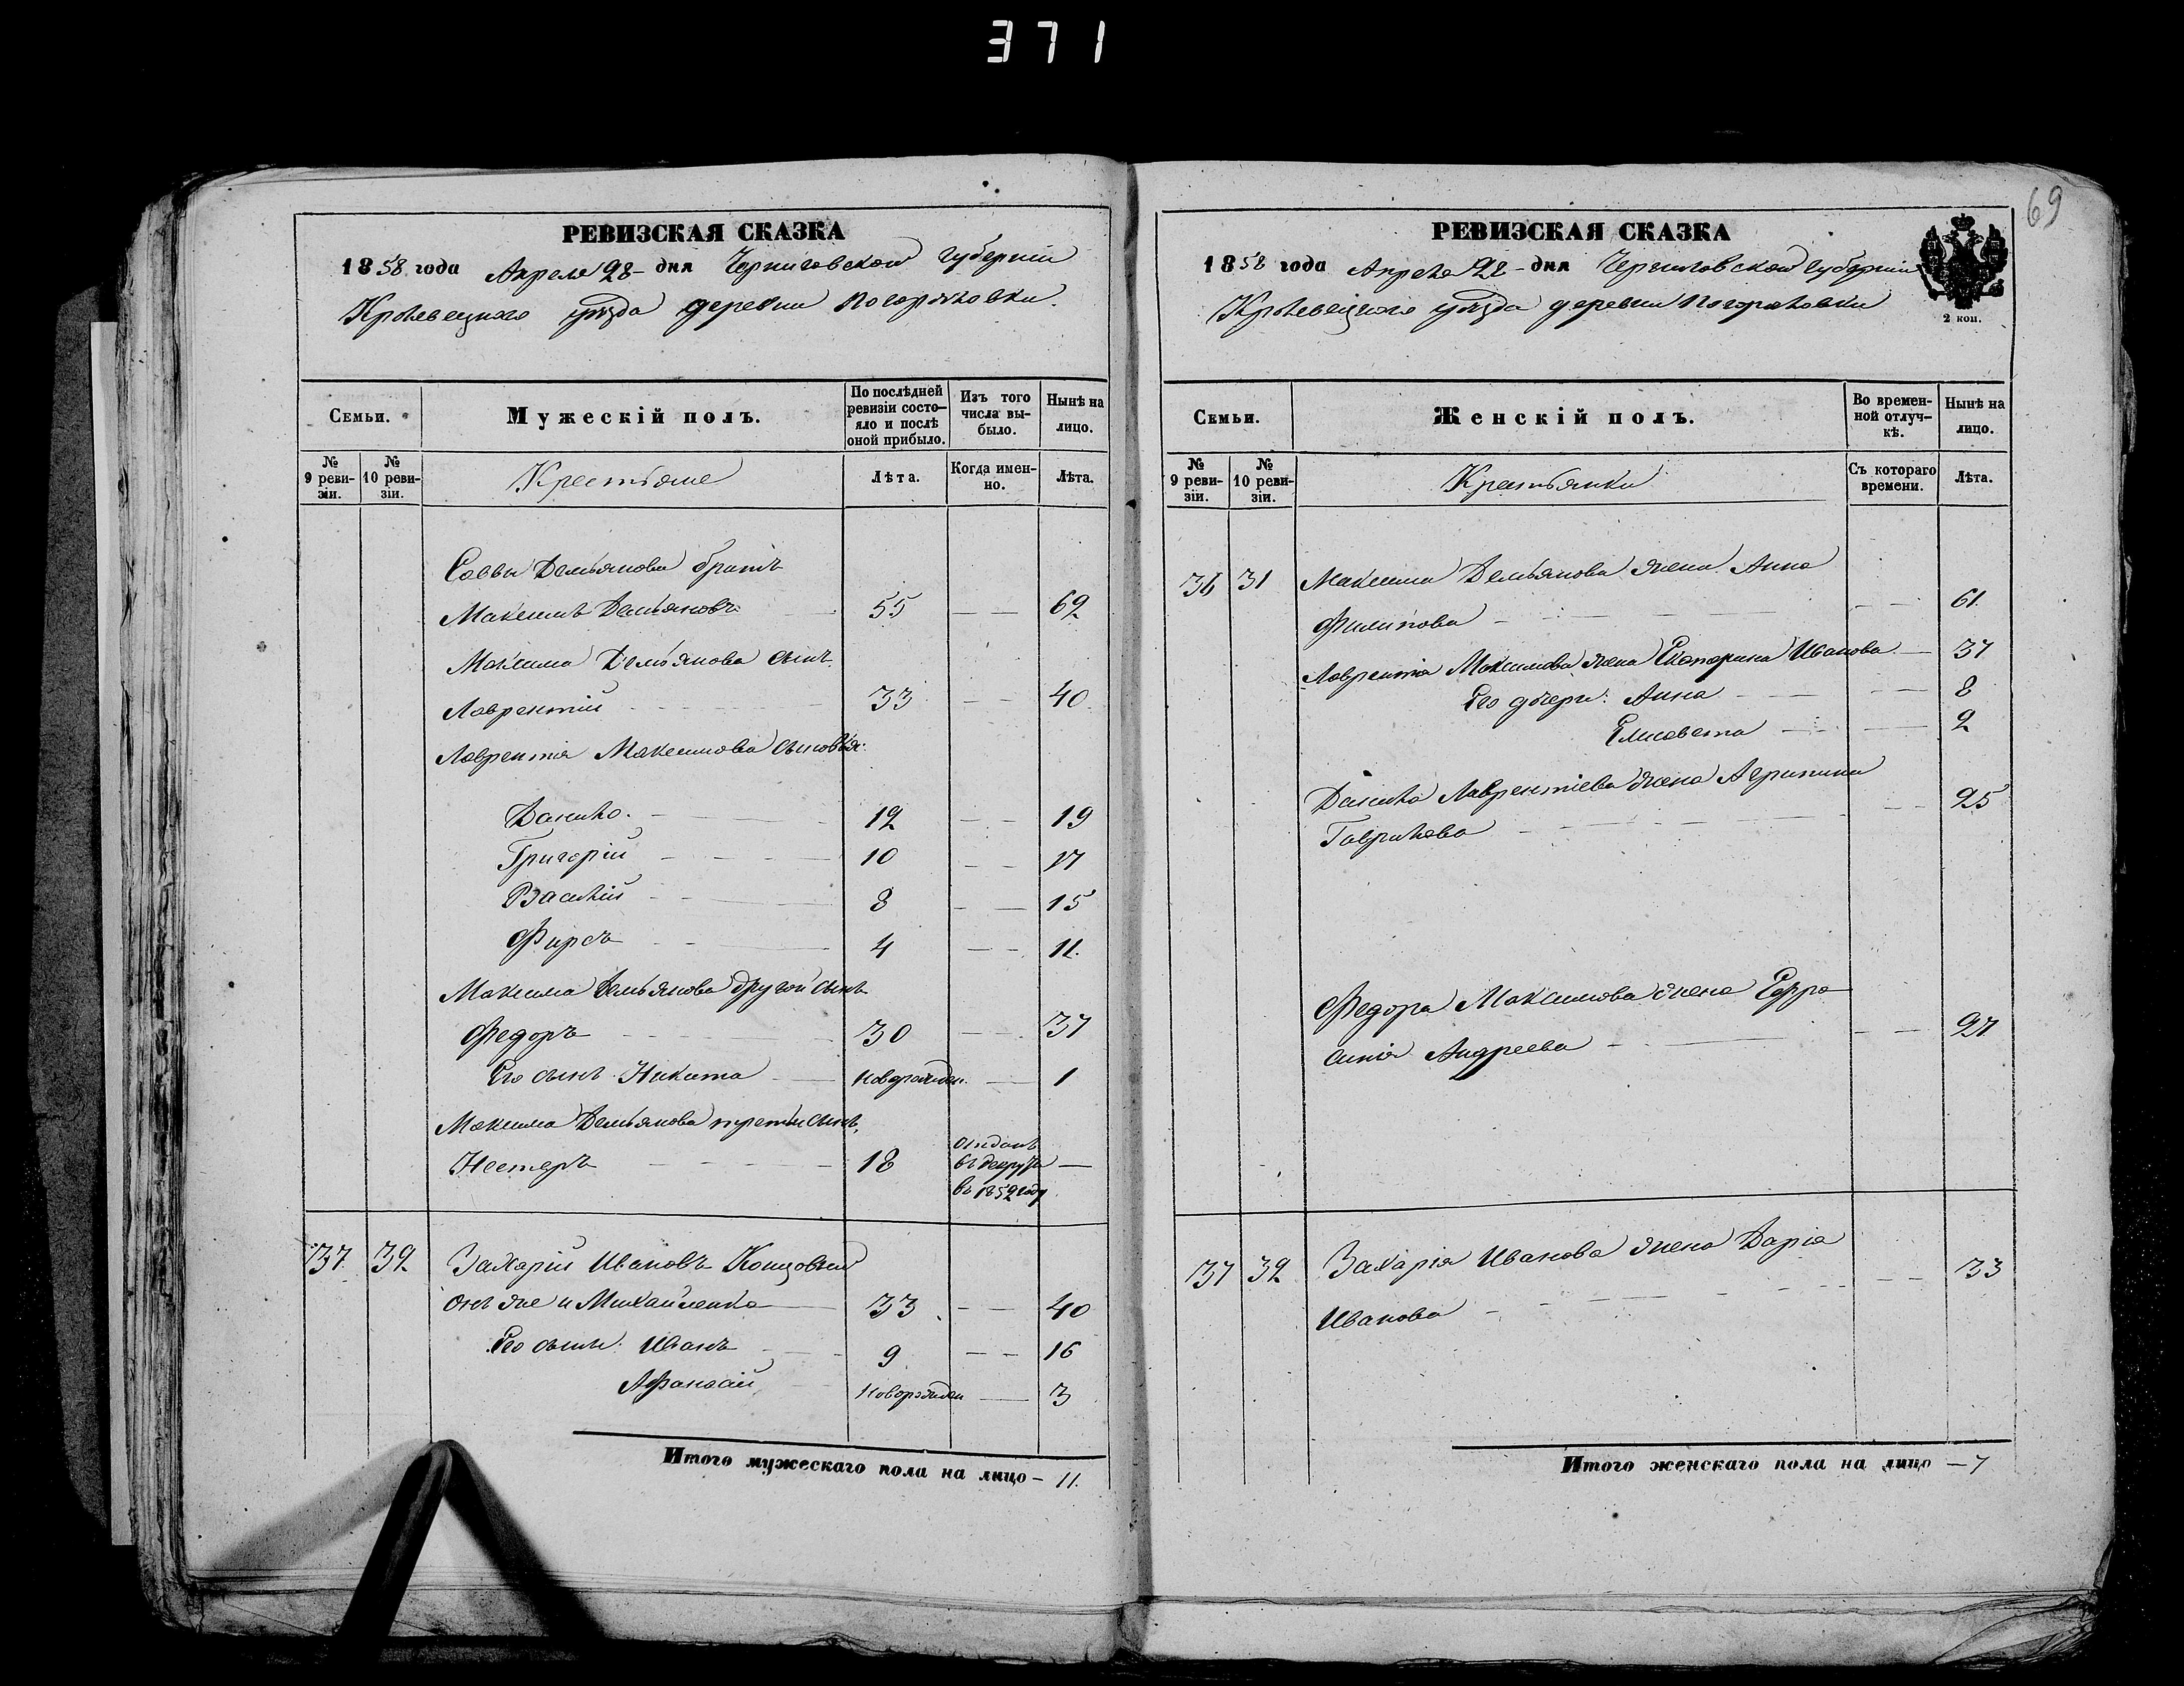 371
69
РЕВИЗСКАЯ СКАЗКА
1858 года Апреля 28 - дня Черниговской губерніи
Кролевецкаго уѣзда деревни Погорѣловки.
Семьи.
Мужескій полъ.
По послѣдней ревизіи состо-яло и послѣ оной прибыло.
Изъ того числа вы-было.
Нынѣ на лицо.
№ 9 реви-зіи.
№ 10 реви-зіи.
Крестьяне
Лѣта.
Когда имен-но.
Лѣта.
Саввы Демьянова братъ
Максимъ Демьяновъ 55 — — 69
Максима Демьянова сынъ
Лаврентій 33 — — 40
Лаврентія Максимова сыновья:
Данило 12 — — 19
Григорій 10 — — 17
Василій 8 — — 15
Фирсъ 4 — — 11
Максима Демьянова другой сынъ
Федоръ 30 — — 37
Его сынъ Никита новорожден. — 1
Максима Демьянова третьи сынъ
Нестеръ 18 отданъ въ рекруты въ 1852 году —
37 32 Захарій Ивановъ
онъ же и Михайленко 33 — — 40
Его сыны: Иванъ 9 — — 16
Афанасій новорожден — 3
Итого мужескаго пола на лицо - 11.
РЕВИЗСКАЯ СКАЗКА
1858 года Апреля 28 - дня Черниговской губерніи
Кролевецкаго уѣзда деревни Погорѣловки
2 коп.
Семьи.
Женскій полъ.
Во времен-ной отлуч-кѣ.
Нынѣ на лицо.
№ 9 реви-зіи.
№ 10 реви-зіи.
Крестьянки
Съ котораго времени.
Лѣта.
36 31 Максима Демьянова жена Анна
Филипова — — 61
Лаврентія Максимова жена Екатерина Иванова — 37
Его дочери: Анна — — 8
Елисавета — 2
Данила Лаврентіева жена Агрипина
Гаврилова — — 25
Федора Максимова жена Ефро-
синія Андреева — — 27
37 32 Захарія Иванова жена Дарія
Иванова — — 33
Итого женскаго пола на лицо - 7